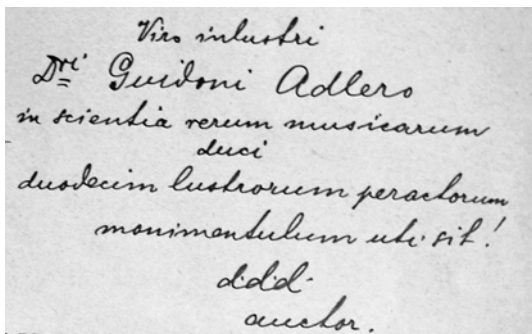 Viro inlustri
Dri Guidoni Adlero
in scientia rerum musicarum
duci
duodecim lustrorum peractorum
monimentulum uti sit!
d·d·d·
auctor.